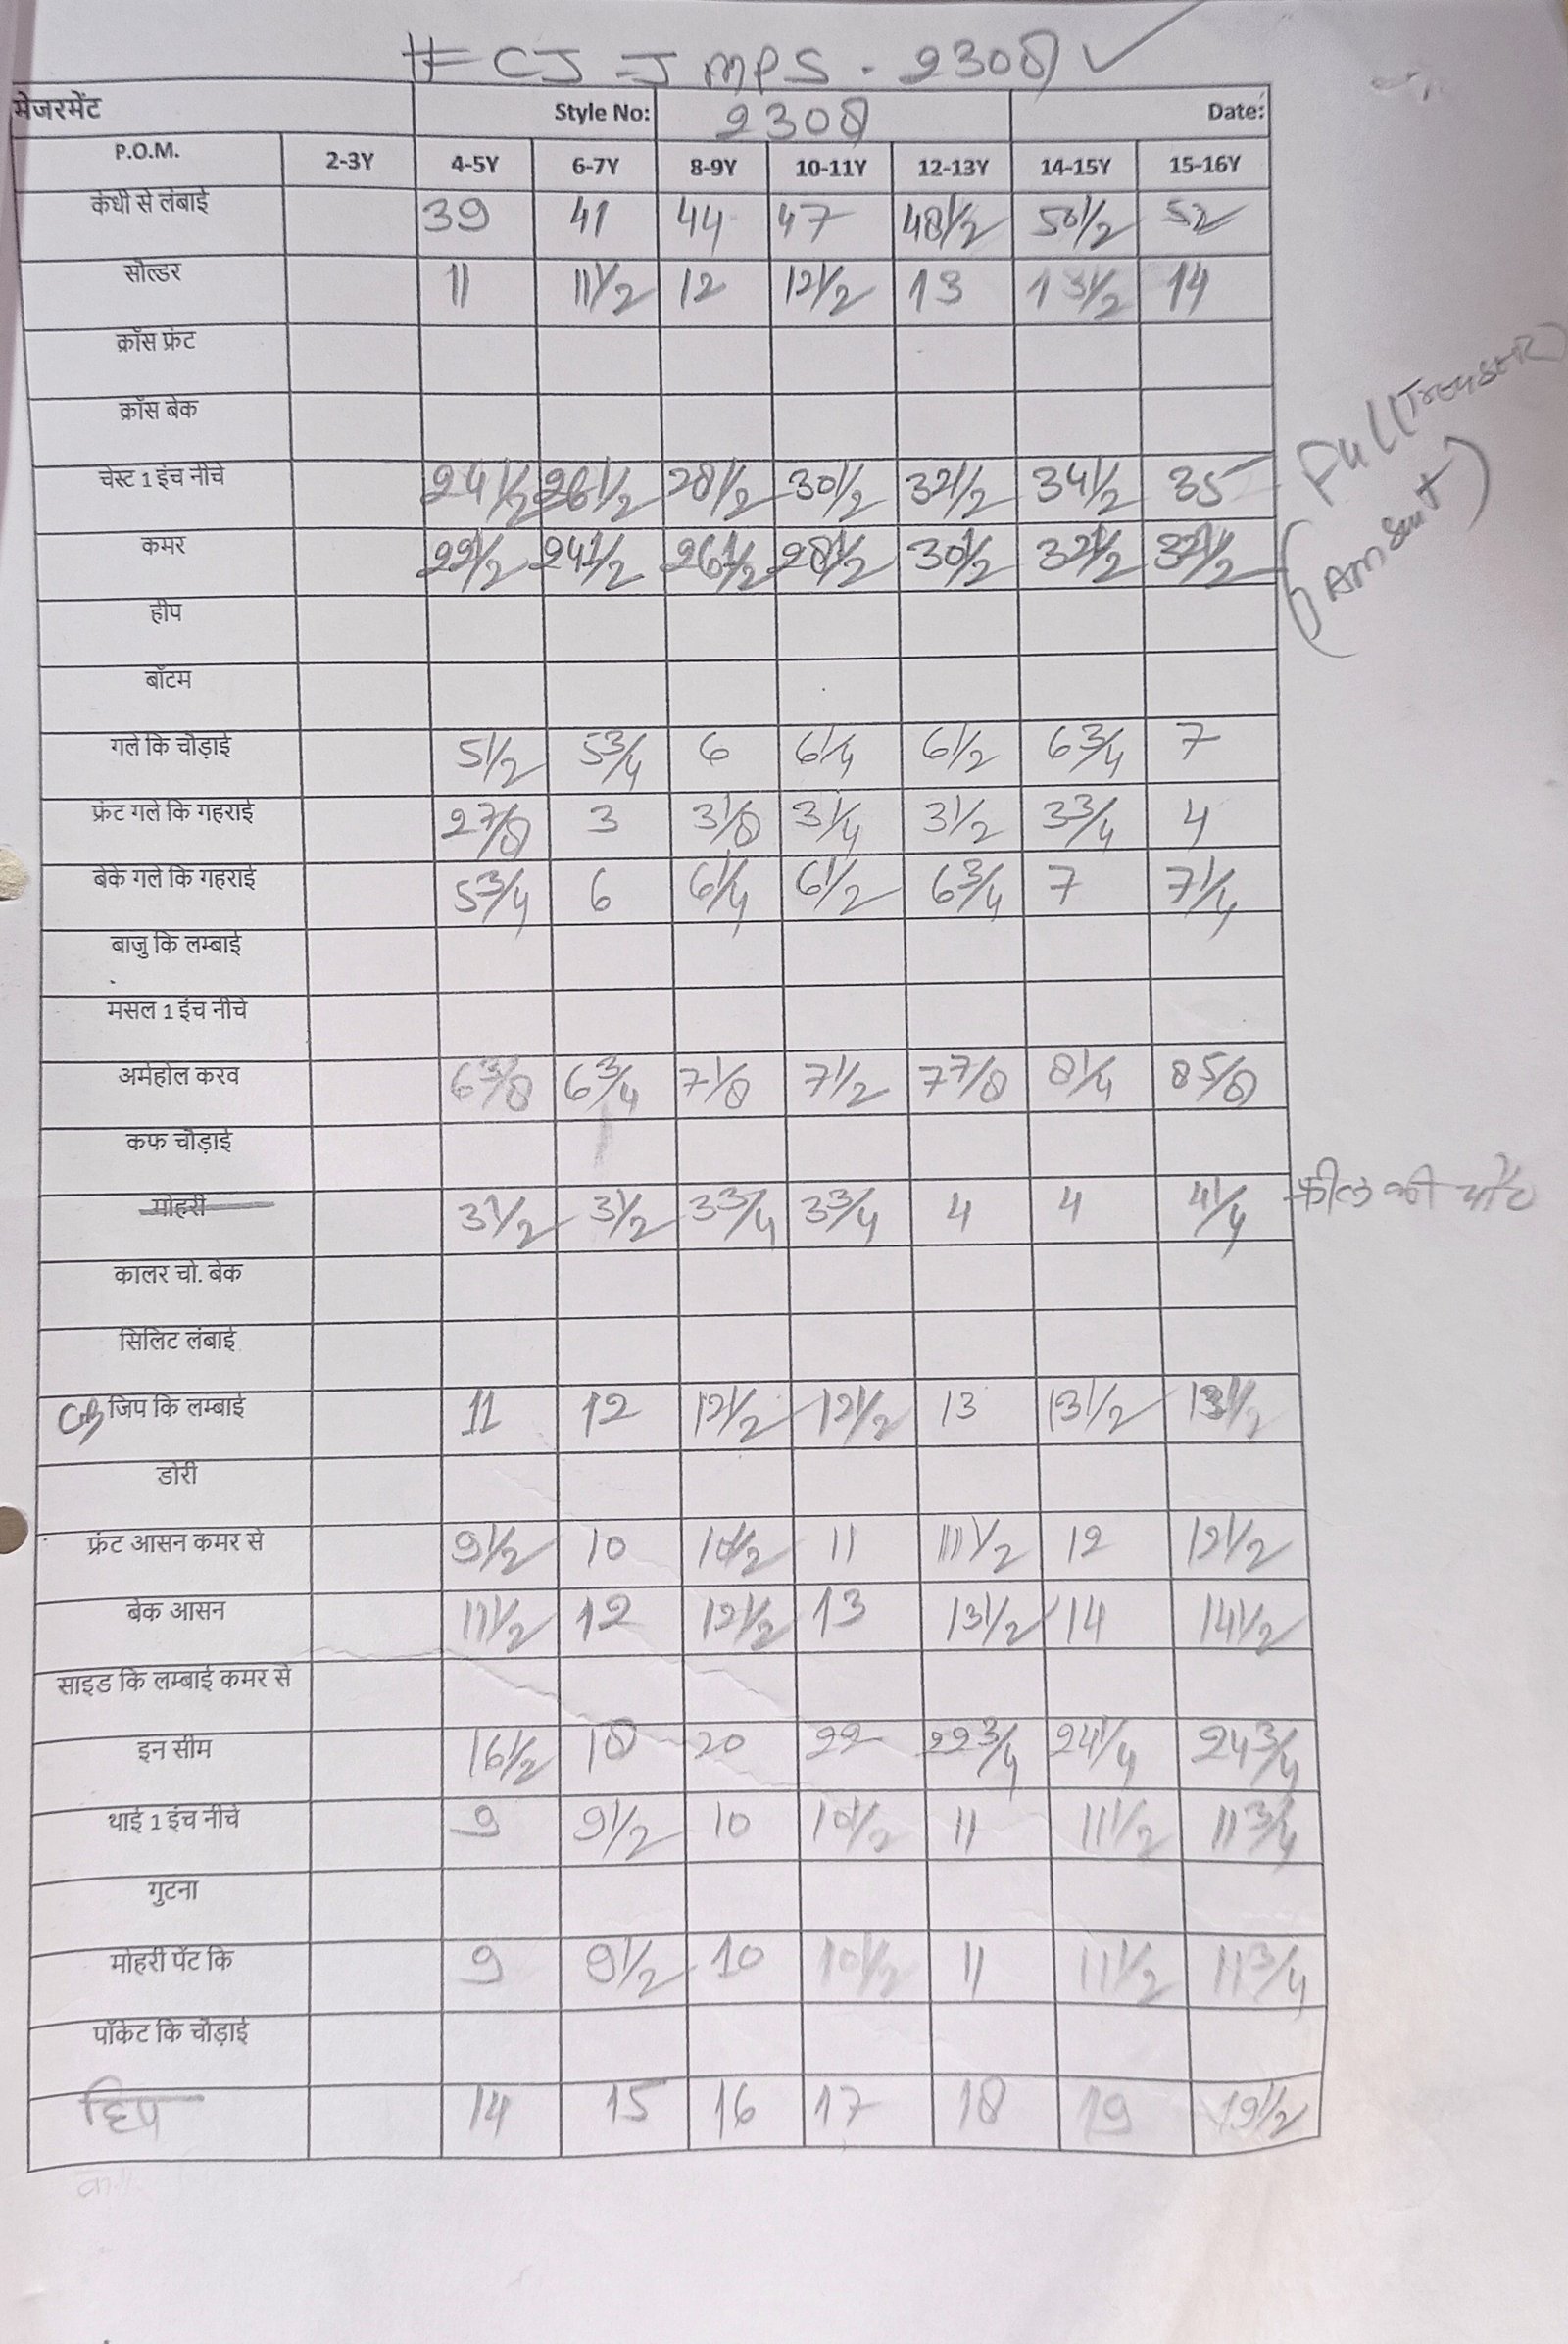 # CJ-JMPS-2308 ✓
मेजरमेंट Style No: 2308 Date:
P.O.M. 2-3Y 4-5Y 6-7Y 8-9Y 10-11Y 12-13Y 14-15Y 15-16Y
कंधी से लंबाई 39 41 44 47 48 1/2 50 1/2 52
सोल्डर 11 11 1/2 12 12 1/2 13 13 1/2 14
क्रॉस फ्रंट
क्रॉस बेक
चेस्ट 1 इंच नीचे 24 1/2 26 1/2 28 1/2 30 1/2 32 1/2 34 1/2 35 Full
कमर 22 1/2 24 1/2 26 1/2 28 1/2 30 1/2 32 1/2 32 1/2
हीप
बॉटम
गले कि चौड़ाई 5 1/2 5 3/4 6 6 1/4 6 1/2 6 3/4 7
फ्रंट गले कि गहराई 2 7/8 3 3 1/8 3 1/4 3 1/2 3 3/4 4
बेके गले कि गहराई 5 3/4 6 6 1/4 6 1/2 6 3/4 7 7 1/4
बाजु कि लम्बाई
मसल 1 इंच नीचे
अर्महोल करव 6 3/8 6 3/4 7 1/8 7 1/2 7 7/8 8 1/4 8 5/8
कफ चौड़ाई
मोहरी 3 1/2 3 1/2 3 3/4 3 3/4 4 4 4 1/4 की
कालर चो. बेक
सिलिट लंबाई
CB जिप कि लम्बाई 11 12 12 1/2 12 1/2 13 13 1/2 13 1/2
डोरी
फ्रंट आसन कमर से 9 1/2 10 10 1/2 11 11 1/2 12 12 1/2
बेक आसन 11 1/2 12 12 1/2 13 13 1/2 14 14 1/2
साइड कि लम्बाई कमर से
इन सीम 16 1/2 18 20 22 22 3/4 24 1/4 24 3/4
थाई 1 इंच नीचे 9 9 1/2 10 10 1/2 11 11 1/2 11 3/4
गुटना
मोहरी पेंट कि 9 9 1/2 10 10 1/2 11 11 1/2 11 3/4
पॉकेट कि चौड़ाई
हिप 14 15 16 17 18 19 19 1/2